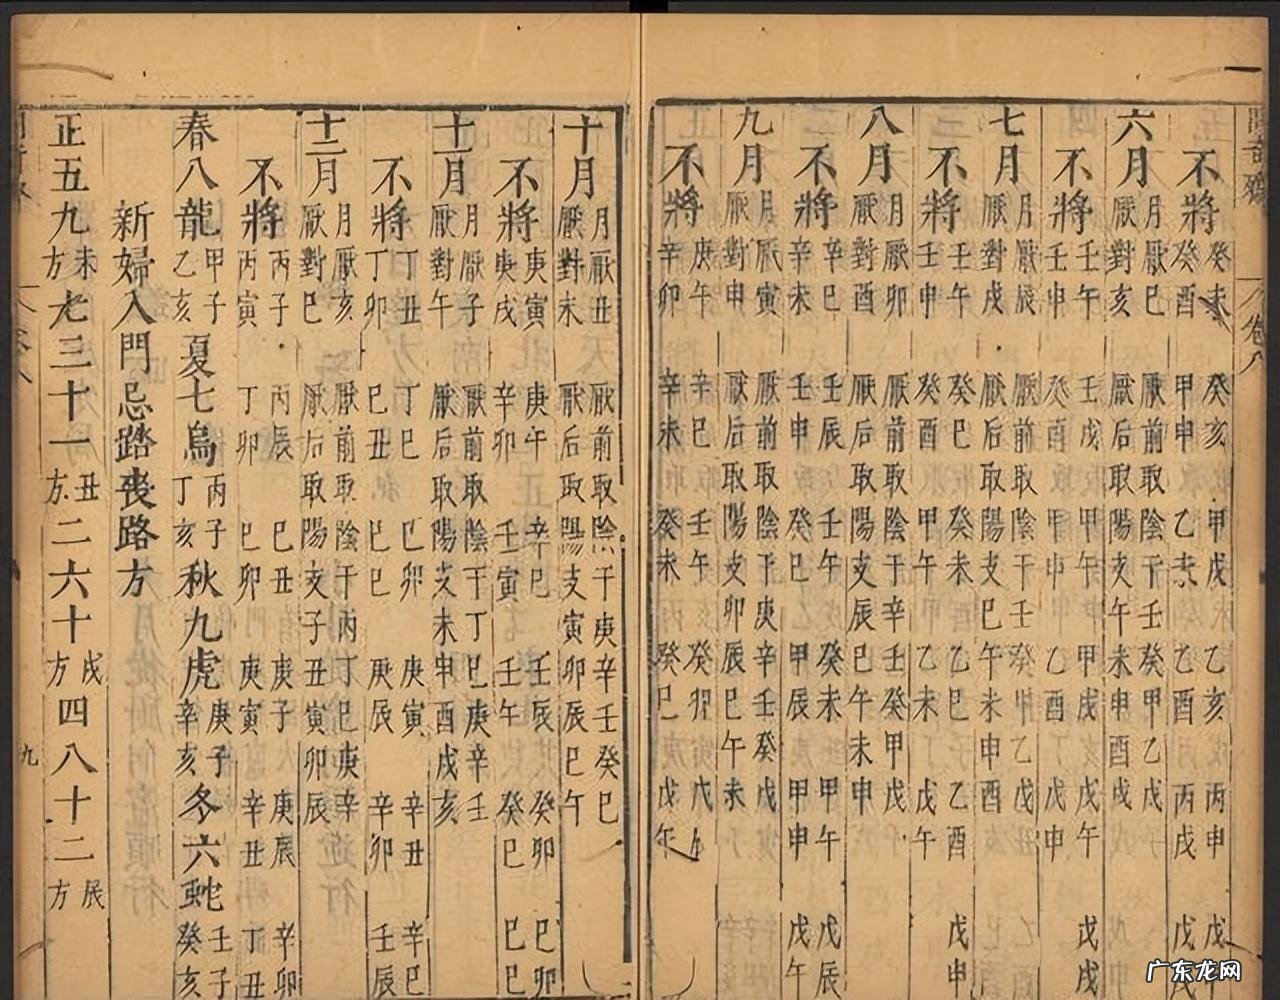 卷八
不將 癸未 癸酉 癸亥 甲申 甲戌 乙未 乙亥 乙酉 丙申 丙戌 戊 戊戌
六月 月厭巳 厭對亥 厭前取陰干壬癸甲乙戊 厭后取陽支午未申酉戌
不將 壬午 壬申 壬戌 癸酉 甲午 甲申 甲戌 乙酉 戊午 戊申 戊戌
七月 月厭辰 厭對戌 厭前取陰干壬癸甲乙戊 厭后取陽支巳午未申酉
不將 壬午 壬申 癸巳 癸酉 癸未 甲午 乙巳 乙未 乙酉 戊午 戊申
八月 月厭卯 厭對酉 厭前取陰干辛壬癸甲戊 厭后取陽支辰巳午未申
不將 辛巳 辛未 壬辰 壬申 壬午 癸巳 癸未 甲辰 甲午 甲申 戊辰 戊午
九月 月厭寅 厭對申 厭前取陰干庚辛癸戊 厭后取陽支卯辰巳午未
不將 庚午 辛卯 辛巳 辛未 壬午 癸未 癸卯 癸巳 戊 戊午
十月 月厭丑 厭對未 厭前取陰干庚辛壬癸巳 厭后取陽支寅卯辰巳午
不將 庚寅 庚戌 庚午 辛卯 辛巳 壬寅 壬辰 壬午 癸卯 癸巳 巳卯 巳巳
十一月 月厭子 厭對午 厭前取陰干丁巳庚辛壬 厭后取陽支未申酉戌亥
不將 丁丑 丁卯 丁巳 巳丑 巳卯 巳巳 庚寅 庚辰 辛丑 辛卯 辛巳 壬辰
十二月 月厭亥 厭對巳 厭前取陰干丙丁巳庚辛 厭后取陽支子丑寅卯辰
不將 丙子 丙寅 丙辰 丁卯 巳丑 巳卯 庚子 庚寅 庚辰 辛丑 辛卯 丁丑
春八龍 甲子 乙亥 夏七烏 丙子 丁亥 秋九虎 庚子 辛亥 冬六蛇 壬子 癸亥
新婦入門忌踏喪路方
正五九 未方 七三十一 丑方 二六十 戌方 四八十二 辰方
九
广东龙网